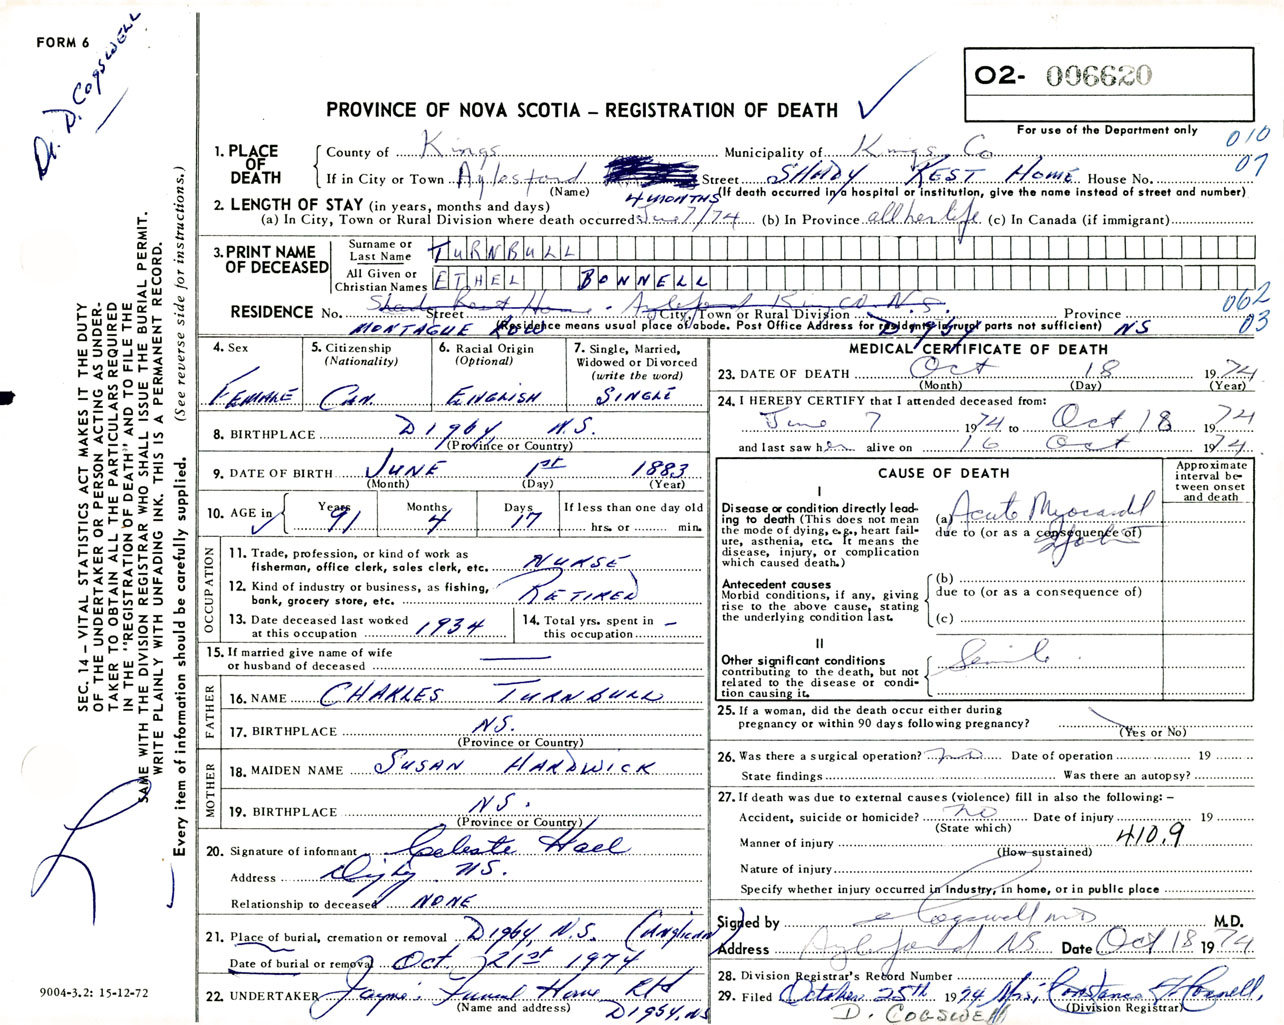 FORM 6
Dr. D. COGSWELL
O2- 006620
PROVINCE OF NOVA SCOTIA – REGISTRATION OF DEATH
For use of the Department only
010
07
1. PLACE OF DEATH
County of Kings Municipality of Kings Co
If in City or Town Aylesford Street SHADY REST HOME House No.
(Name) (If death occurred in a hospital or institution, give the name instead of street and number)
4 MONTHS
2. LENGTH OF STAY (in years, months and days)
(a) In City, Town or Rural Division where death occurred June 7/74 (b) In Province all her life (c) In Canada (if immigrant)
3. PRINT NAME OF DECEASED
Surname or Last Name TURNBULL
All Given or Christian Names ETHEL BONNELL
062
03
RESIDENCE No. Shady Rest Home - Aylesford Kings Co. N.S.
Street City, Town or Rural Division Province
MONTAGUE ROW DIGBY NS
(Residence means usual place of abode. Post Office Address for residents in rural parts not sufficient)
4. Sex
FEMALE
5. Citizenship
(Nationality)
CAN.
6. Racial Origin
(Optional)
ENGLISH
7. Single, Married,
Widowed or Divorced
(write the word)
SINGLE
8. BIRTHPLACE DIGBY, N.S.
(Province or Country)
9. DATE OF BIRTH JUNE 1st 1883
(Month) (Day) (Year)
10. AGE in Years Months Days If less than one day old
91 4 17 hrs. or min.
OCCUPATION
11. Trade, profession, or kind of work as
fisherman, office clerk, sales clerk, etc. NURSE
12. Kind of industry or business, as fishing,
bank, grocery store, etc. RETIRED
13. Date deceased last worked
at this occupation 1934
14. Total yrs. spent in
this occupation –
15. If married give name of wife
or husband of deceased
FATHER
16. NAME CHARLES TURNBULL
17. BIRTHPLACE NS.
(Province or Country)
MOTHER
18. MAIDEN NAME SUSAN HARDWICK
19. BIRTHPLACE NS.
(Province or Country)
20. Signature of informant Celeste
Address Digby NS.
Relationship to deceased NONE
21. Place of burial, cremation or removal DIGBY, N.S. (ANGLICAN)
Date of burial or removal Oct. 21st 1974
22. UNDERTAKER Jayne's Funeral Home
(Name and address) DIGBY, NS
MEDICAL CERTIFICATE OF DEATH
23. DATE OF DEATH Oct 18 1974
(Month) (Day) (Year)
24. I HEREBY CERTIFY that I attended deceased from:
June 7 1974 to Oct 18 1974
and last saw her alive on 16 Oct 1974
CAUSE OF DEATH
Approximate interval between onset and death
I
Disease or condition directly leading to death (This does not mean the mode of dying, e.g., heart failure, asthenia, etc. It means the disease, injury, or complication which caused death.)
(a) Acute Myocardial
due to (or as a consequence of)
Antecedent causes
Morbid conditions, if any, giving rise to the above cause, stating the underlying condition last.
(b)
due to (or as a consequence of)
(c)
II
Other significant conditions contributing to the death, but not related to the disease or condition causing it.
Senile
25. If a woman, did the death occur either during
pregnancy or within 90 days following pregnancy?
(Yes or No)
26. Was there a surgical operation? no Date of operation 19
State findings Was there an autopsy?
27. If death was due to external causes (violence) fill in also the following: –
Accident, suicide or homicide? no Date of injury 19
(State which)
Manner of injury 410.9
(How sustained)
Nature of injury
Specify whether injury occurred in Industry, in home, or in public place
Signed by Cogswell MD M.D.
Address Aylesford NS Date Oct 18 1974
28. Division Registrar's Record Number
29. Filed October 25th 1974 Mrs. Constance
(Division Registrar)
D. COGSWELL
SEC. 14 – VITAL STATISTICS ACT MAKES IT THE DUTY
OF THE UNDERTAKER OR PERSON ACTING AS UNDER-
TAKER TO OBTAIN ALL THE PARTICULARS REQUIRED
IN THE "REGISTRATION OF DEATH" AND TO FILE THE
SAME WITH THE DIVISION REGISTRAR WHO SHALL ISSUE THE BURIAL PERMIT.
WRITE PLAINLY WITH UNFADING INK. THIS IS A PERMANENT RECORD.
Every item of information should be carefully supplied. (See reverse side for instructions.)
9004-3.2: 15-12-72